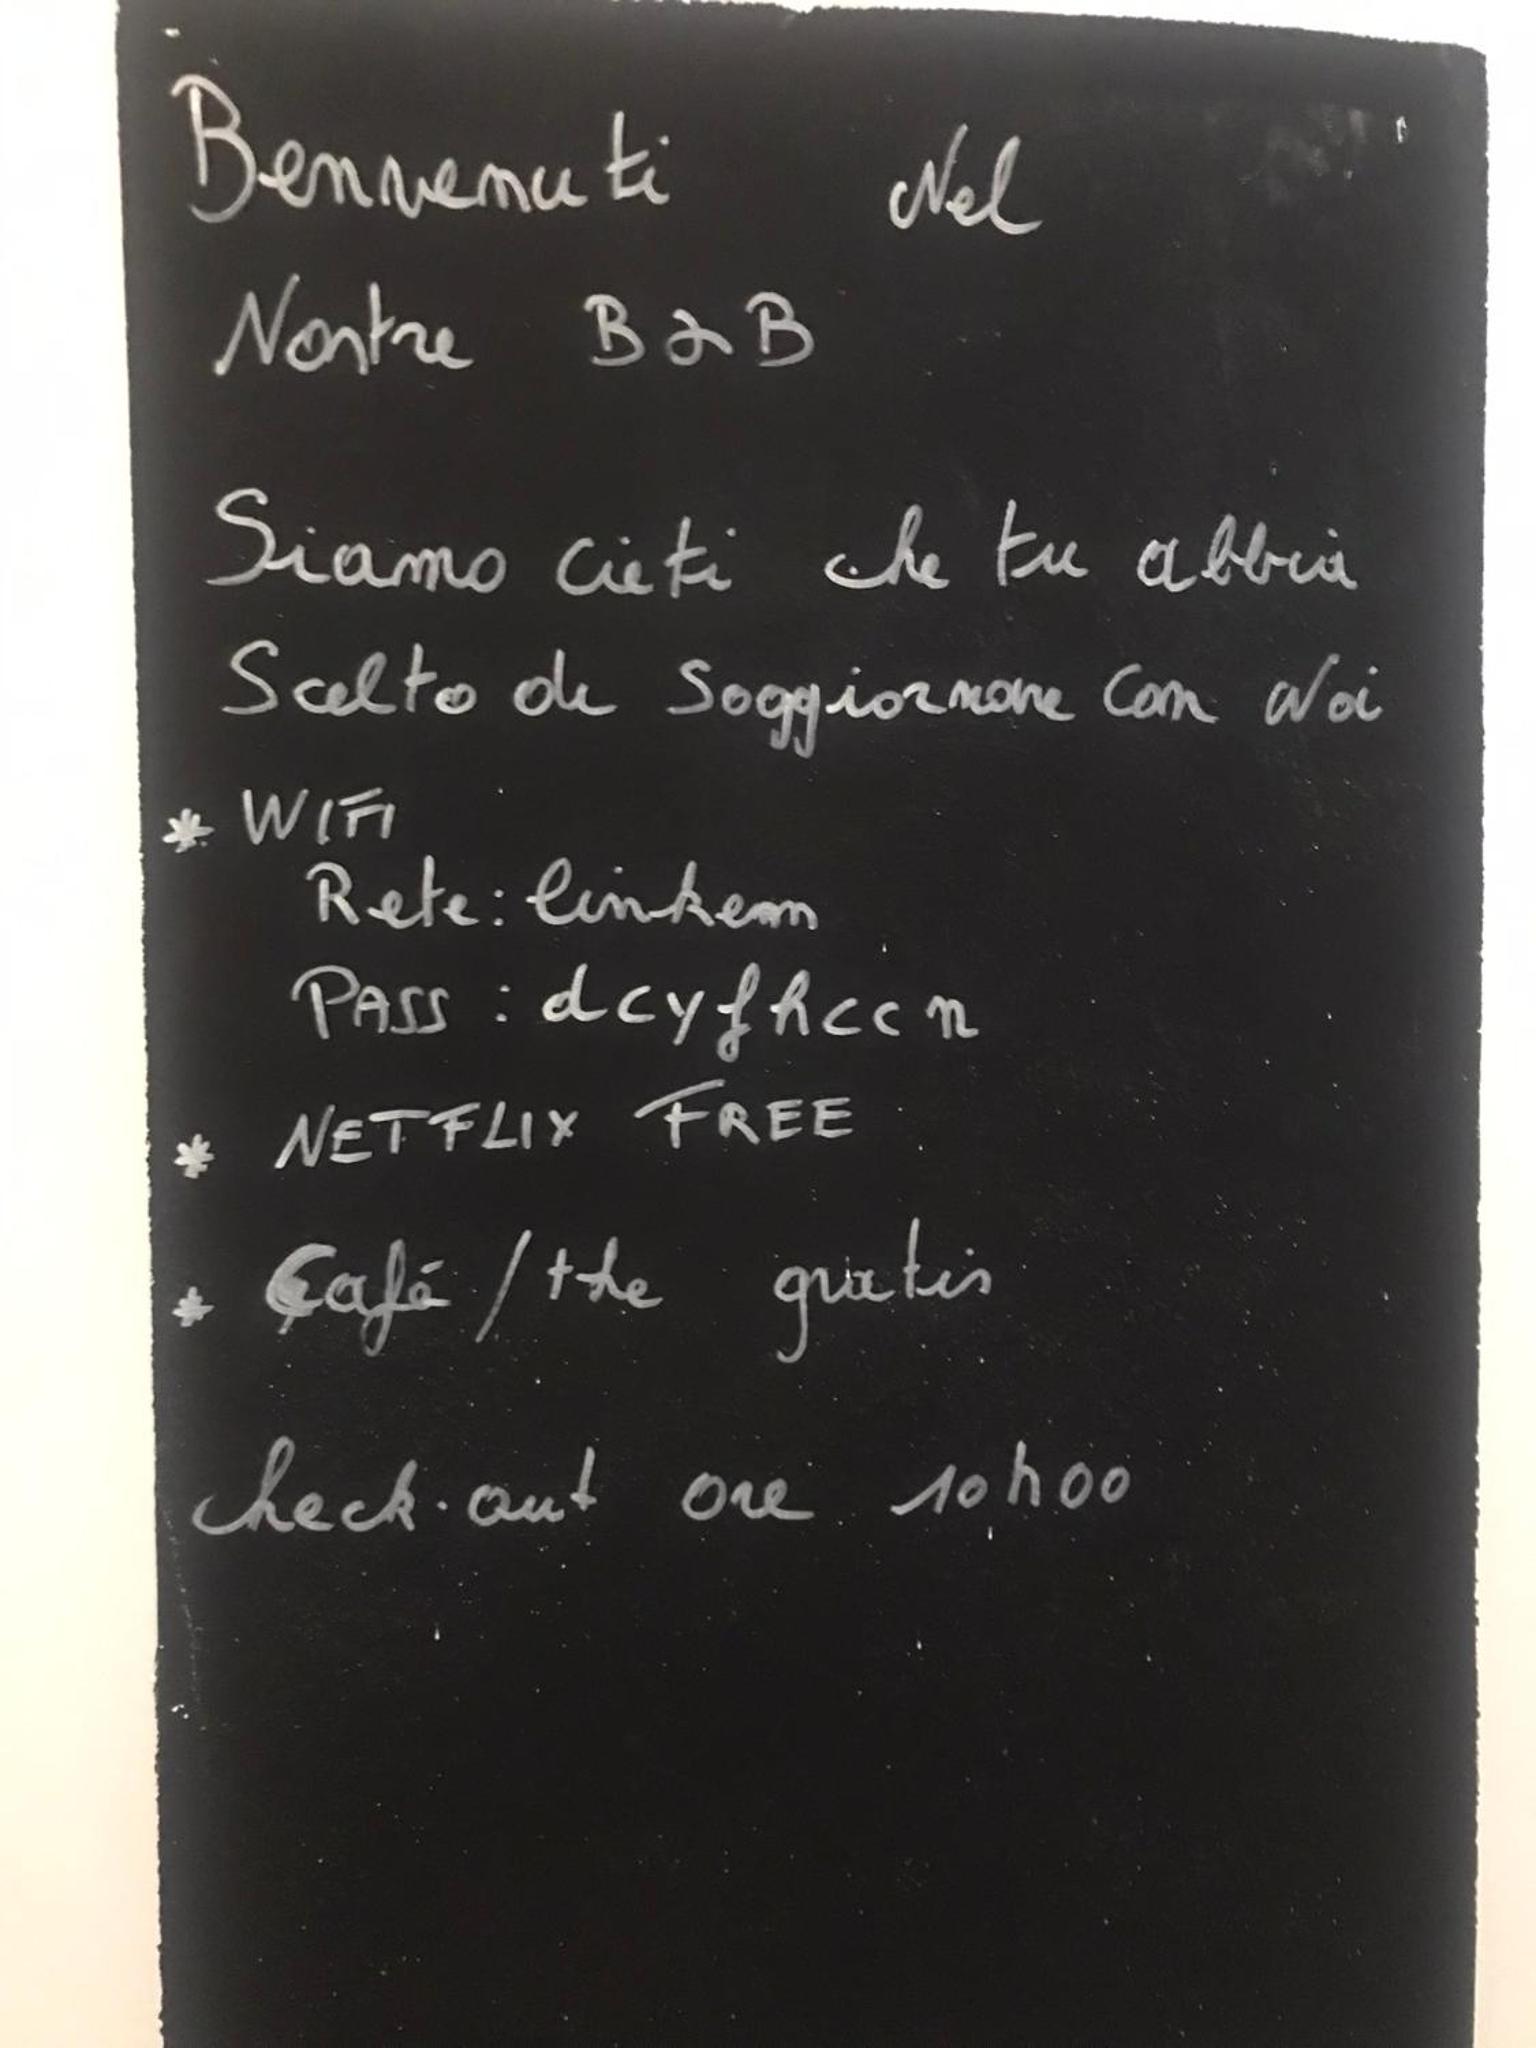 Benvenuti Nel
Nostre B&B
Siamo cieti che tu abbia
Scelto di Soggiornare Con Noi
* WIFI
Rete: linkem
PASS : dcyfhccn
* NETFLIX FREE
* Café / the gratis
check-out ore 10h00